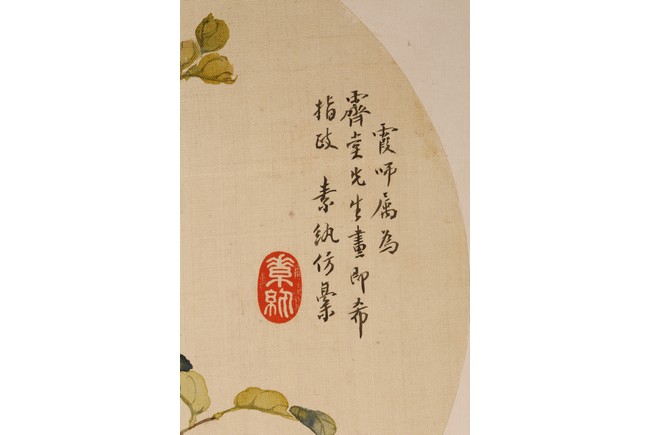 霞師属為
霽堂先生畫即希
指政 素紈仿
素紈